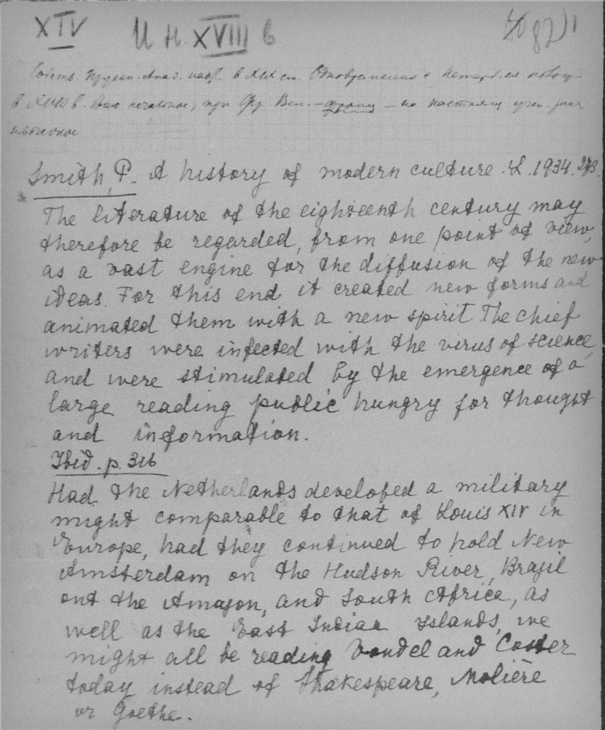 XIV И н. XVIII в
в XIX ст.
в XVIII в.
Smith, P. A history of modern culture. L. 1934. 273.
The literature of the eighteenth century may
therefore be regarded, from one point of view,
as a vast engine for the diffusion of the new
ideas. For this end it created new forms and
animated them with a new spirit. The chief
writers were infected with the virus of science,
and were stimulated by the emergence of a
large reading public hungry for thought
and information.
Ibid. p. 316
Had the Netherlands developed a military
might comparable to that of Louis XIV in
Europe, had they continued to hold New
Amsterdam on the Hudson River, Brazil
ont the Amazon, and South Africa, as
well as the East Indian Islands, we
might all be reading Vondel and Coster
today instead of Shakespeare, Molière
or Goethe.